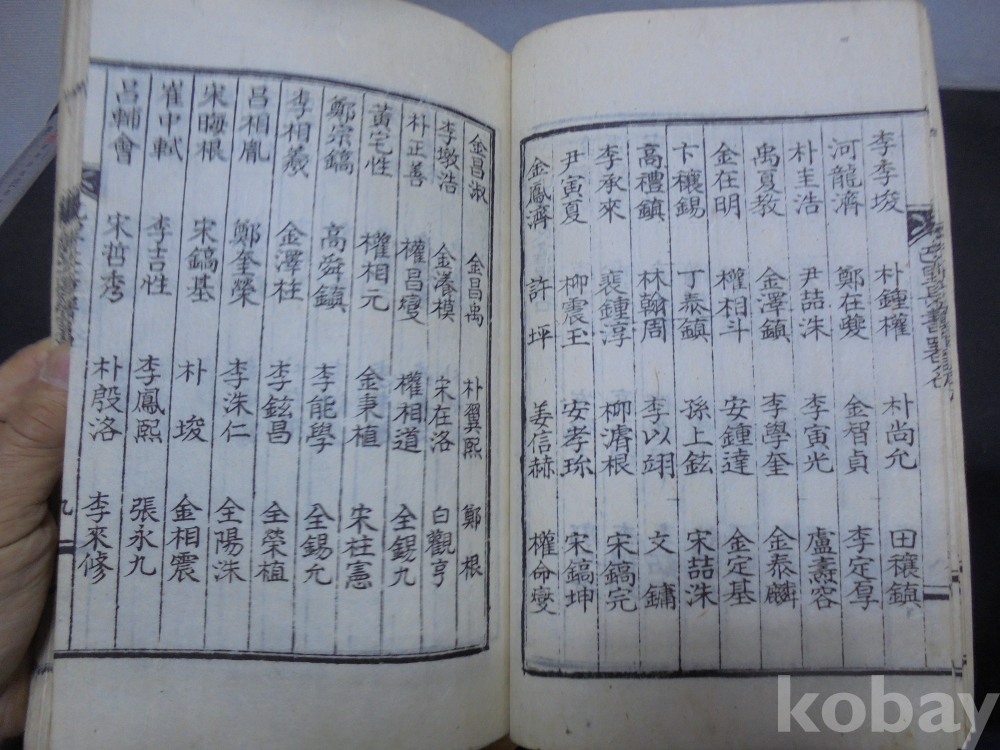 李李埈 朴鍾權 朴尚允 田穰鎮
河龍濟 鄭在夔 金智貞 李定厚
朴圭浩 尹喆洙 李寅光 盧壽容
禹夏教 金澤鎮 李學奎 金泰麟
金在明 權相斗 安鍾達 金定基
卞穰錫 丁泰鎮 孫上鉉 宋喆洙
高禮鎮 林翰周 李以翊 文鏞
李承來 裵鍾淳 柳濬根 宋鎬完
尹寅夏 柳震玉 安孝珎 宋鎬坤
金鳳濟 許坪 姜信赫 權命燮
金昌淑 金昌禹 朴翼熙 鄭根
李墩浩 金濩模 宋在洛 白觀亨
朴正善 權昌燮 權相道 全錫九
黃宅性 權相元 金秉植 宋柱憲
鄭宗鎬 高舜鎮 李能學 全錫允
李相羲 金澤柱 李鉉昌 全榮植
呂相胤 鄭奎榮 李洙仁 全陽洙
宋晦根 宋鎬基 朴埈 金相震
崔中軾 李吉性 李鳳熙 張永九
呂輔會 宋哲秀 朴殷洛 李來修
九
kobay